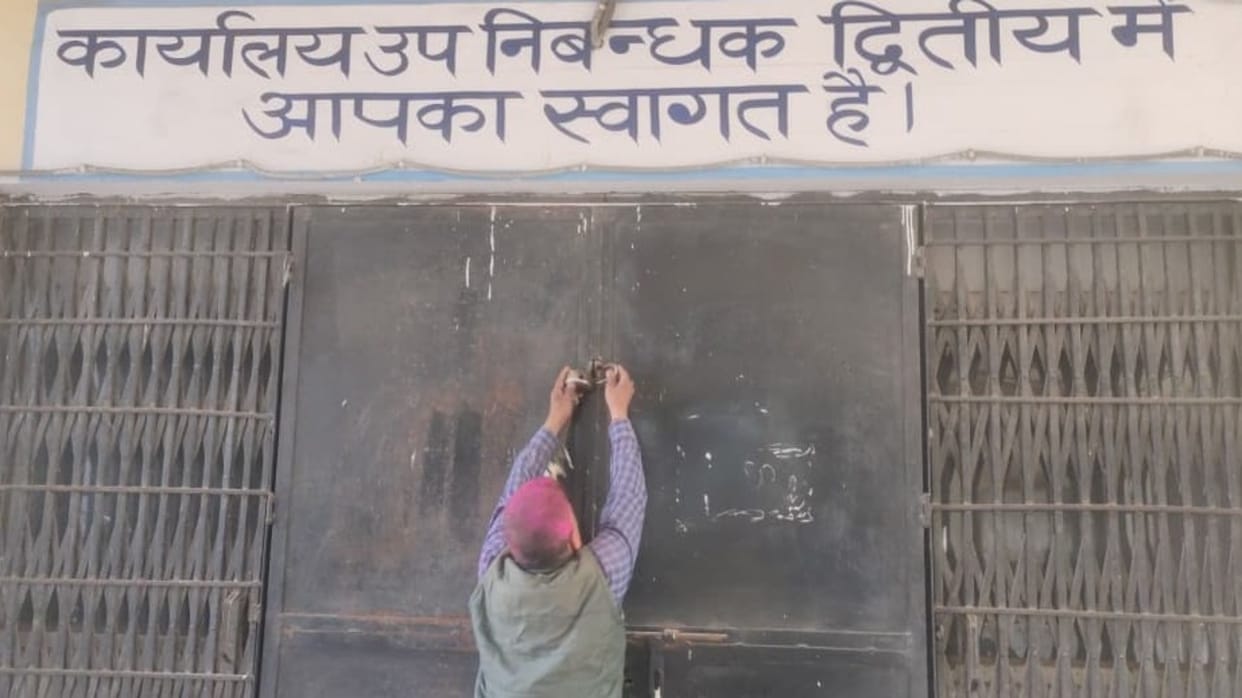 कार्यालय उप निबन्धक द्वितीय में
आपका स्वागत है।